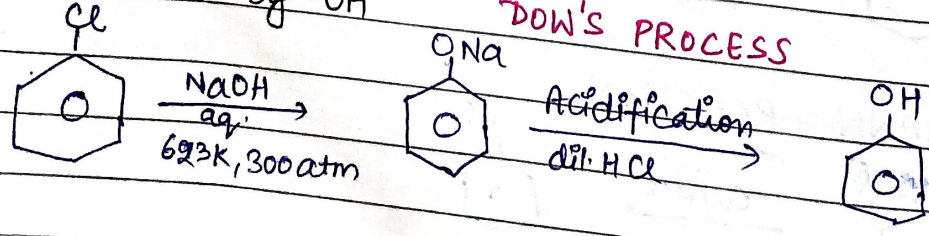 OH
DOW'S PROCESS
Cl
NaOH
aq.
623K, 300 atm
ONa
Acidification
dil. HCl
OH